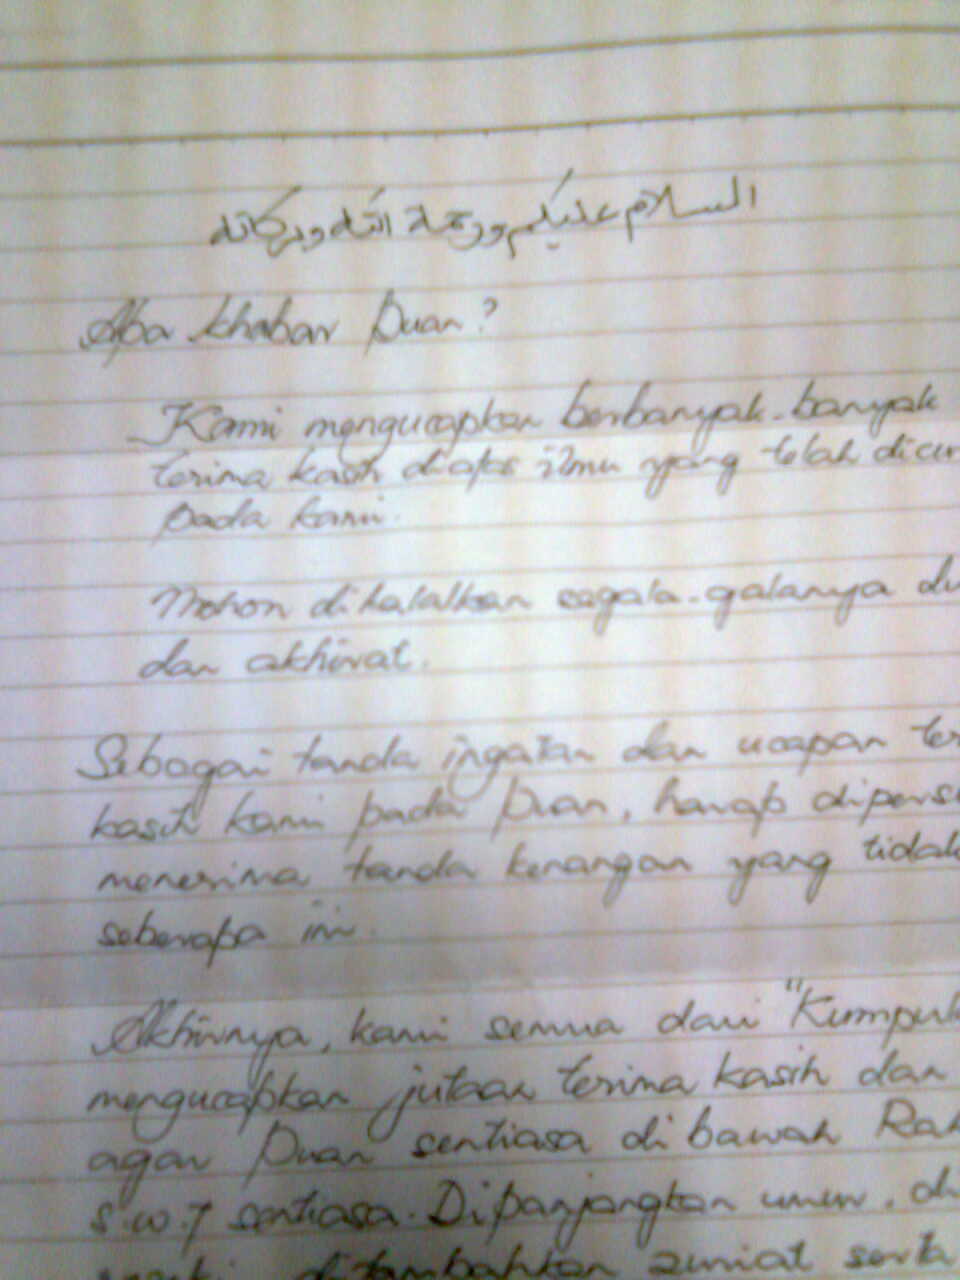 السلام عليكم ورحمة الله وبركاته
Apa khabar Puan?
Kami mengucapkan berbanyak-banyak
terima kasih diatas ilmu yang telah
pada kami.
Mohon dihalalkan segala-galanya
dan akhirat.
Sebagai tanda ingatan dan ucapan
kasih kami pada Puan, harap
menerima tanda kenangan yang tidak
seberapa ini.
Akhirnya, kami semua dari "
mengucapkan jutaan terima kasih dan
agar Puan sentiasa di bawah
s.w.T sentiasa. Dipanjangkan umur,
ditambahkan zuriat serta